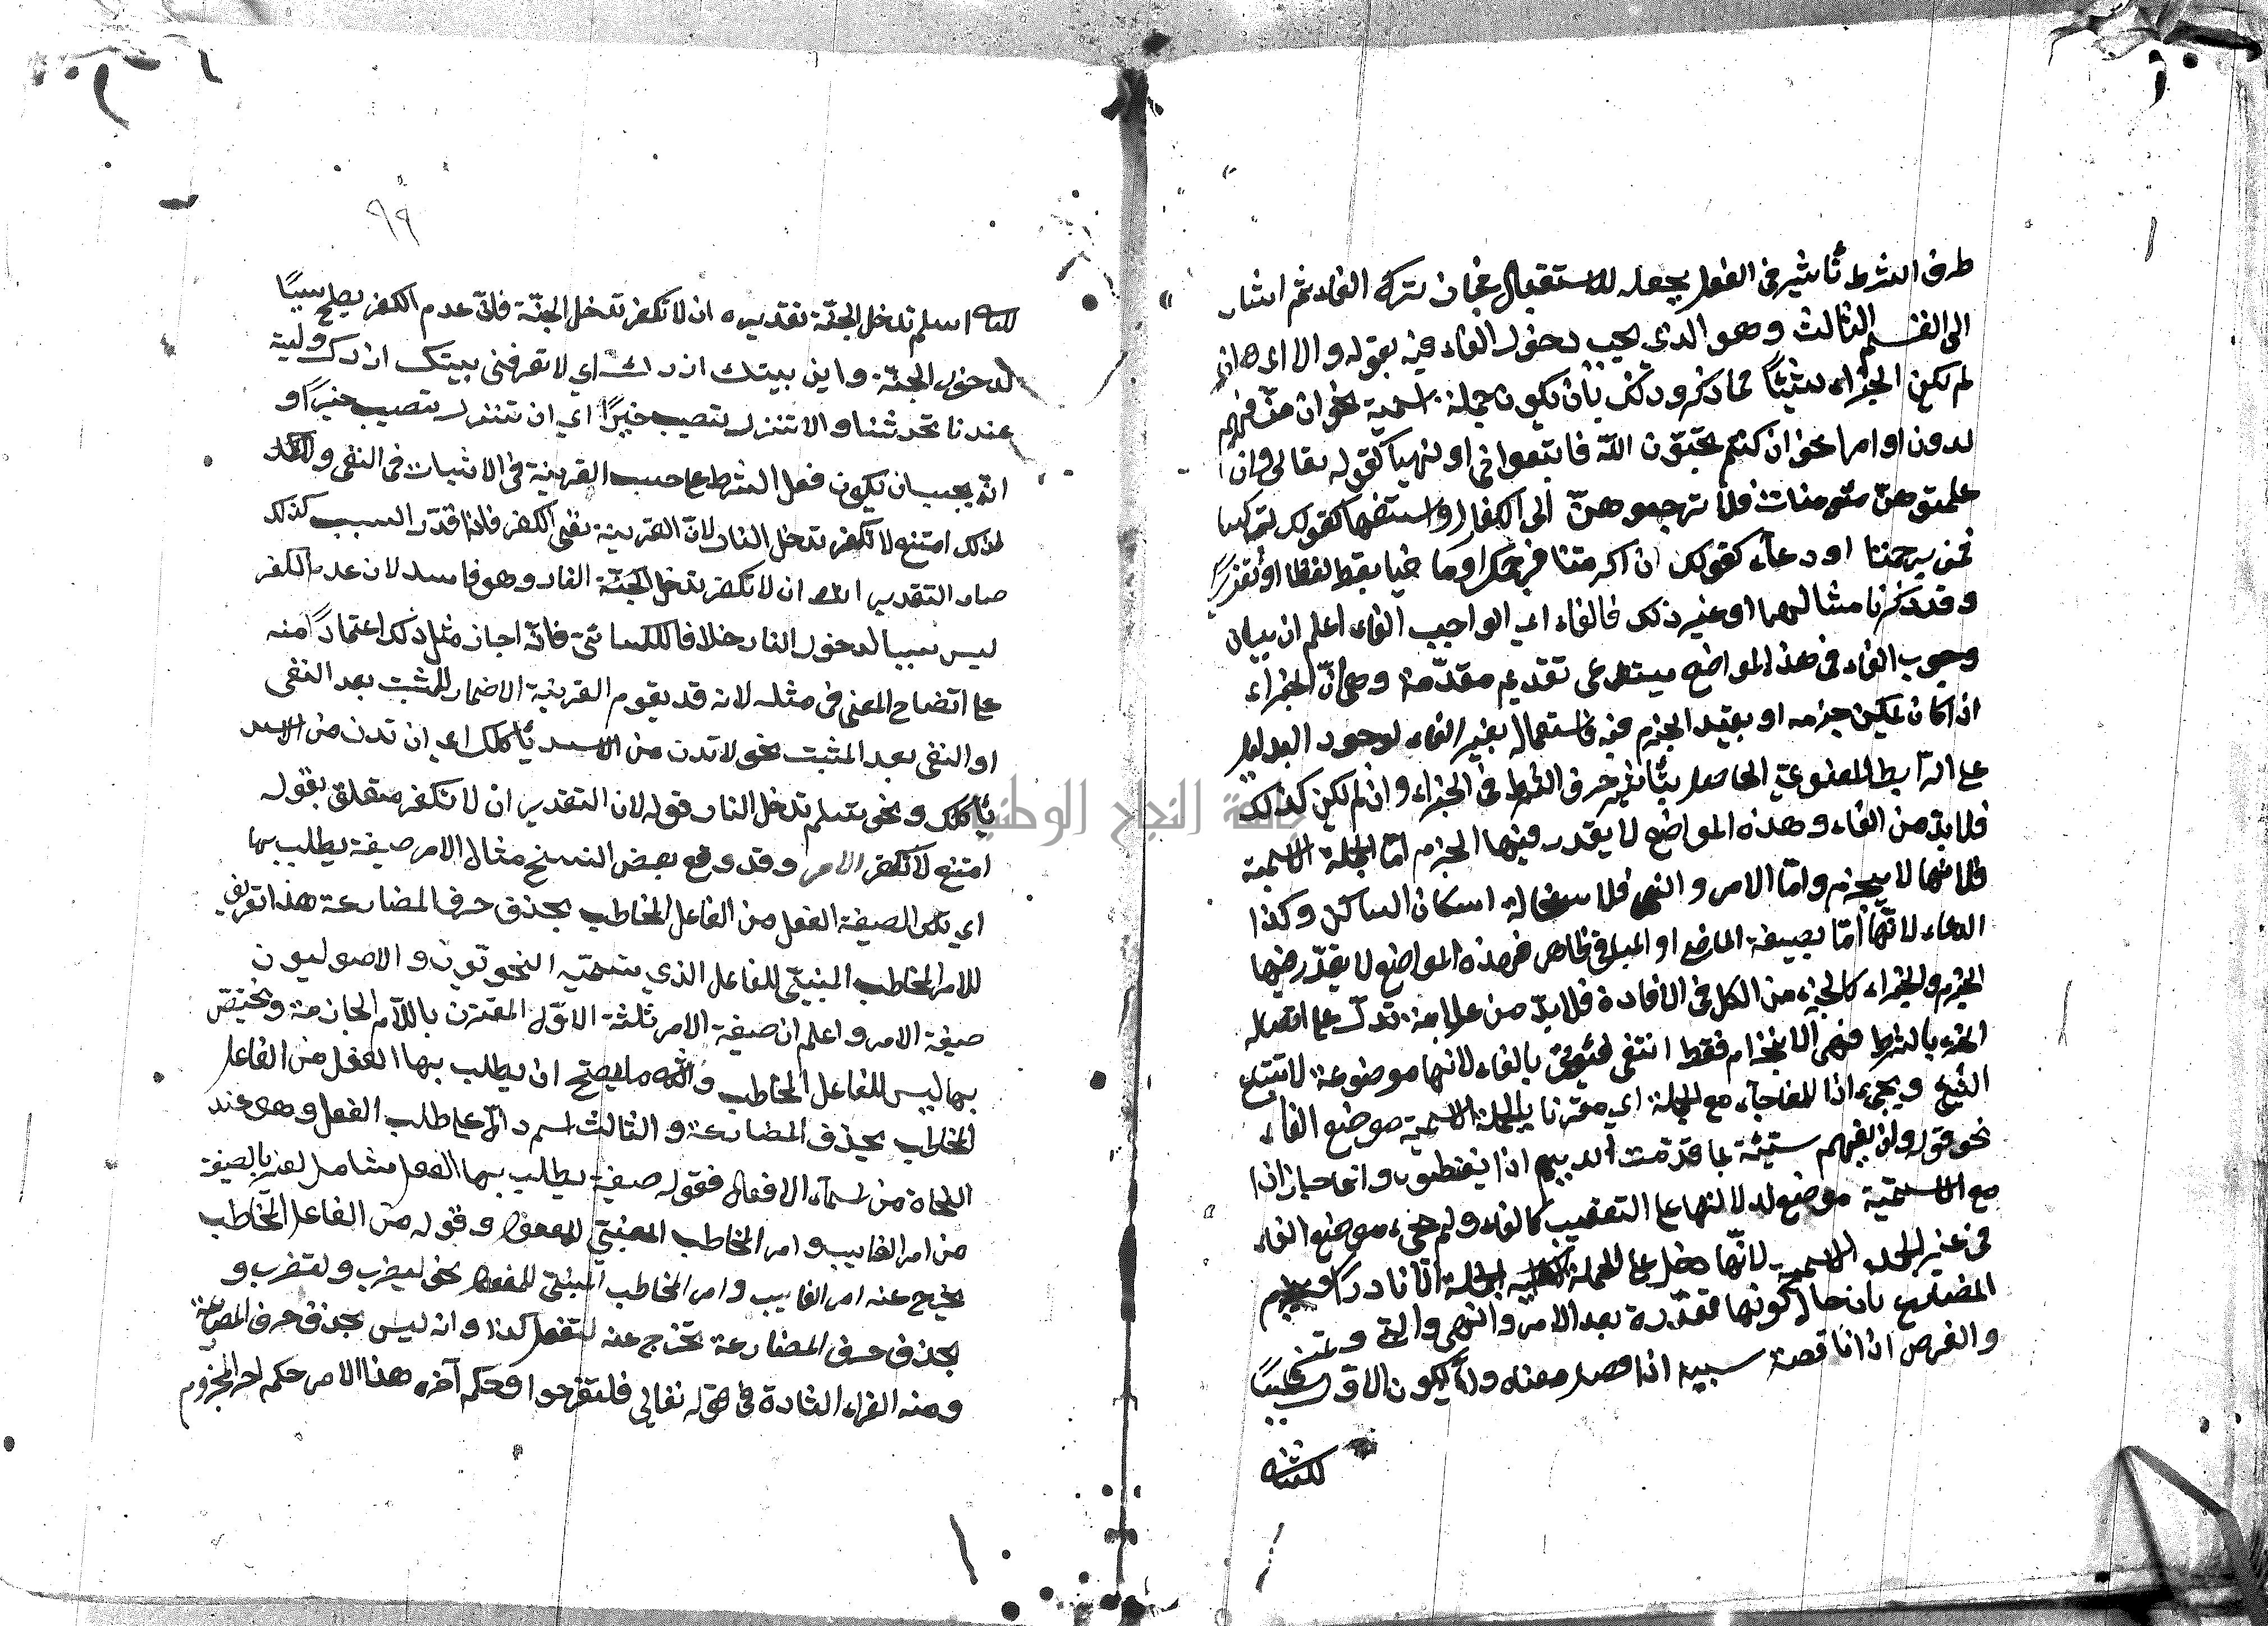 طرف الشرط تأثير في الفعل يجعله للاستقبال فجاز تركه الفاء ثم اشار
الى القسم الثالث وهو الذي يجب دخول الفاء فيه بقوله والا اي وان
لم يكن الجزاء شيئا مما ذكر وذلك بأن يكون جملة اسمية نحو ان مت فهم
لدون او امرا نحو ان كنتم تحبّون اللّه فاتبعوني او نهيا كقوله تعالى وان
علمتموهنّ مؤمنات فلا ترجعوهنّ الى الكفار او استفهاما كقولك ان تركتنا
فمن يرحمنا او دعاء كقولك ان اكرمتنا فيرحمك او ماضيا بقد لفظا او تقديرا
وقد ذكرنا مثالهما او غير ذلك فالفاء اي الواجب الفاء اعلم ان بيان
وجوب الفاء في هذه المواضع يستدعى تقديم مقدّمة وهي انّ الجزاء
اذا كان يمكن جزمه او يفيد الجزم فيه فاستعماله بغير الفاء لوجود الدليل
على الرابط المعنوي الحاصل بتأثير حرف الشرط في الجزاء وان لم يكن كذلك
جامعة النجاح الوطنية
فلا بدّ من الفاء وهذه المواضع لا يقدر فيها الجزم امّا الجملة الاسمية
فلانها لا ينجزم وامّا الامر والنهي فلاستحالة اسكان الساكن وكذا
الدعاء لانّها امّا بصيغة الماضي او ظاهر فهذه المواضع لا يقدّر فيها
الجزم والجزاء كالجزء من الكل في الافادة فلا بدّ من علامة تدلّ على اتصال
الجزاء بالشرط فهي الانجزام فقط انتفى فيؤتى بالفاء لانها موضوعة لاتتبع
الشيء ويجيء اذا للمفاجأة مع الجملة اي مقترنا بالجملة الاسمية موضع الفاء
نحو قوله وان تصبهم سيّئة بما قدّمت ايديهم اذا يقنطون وانما جاز اذا
مع الاسميّة موضع لدلالتها على التعقيب كالفاء ولم يجيء موضع الفاء
في غير الجملة الاسمية لانّها دخل على الجملة الا نادرا
المضارع بان حال كونها مقدّرة بعد الامر والنهي والتمني
والعرض اذا قصد سببية اذا قصد معناه وان يكون الاول سببا
للثاني
٩٩
اسلم تدخل الجنّة تقديره ان لا تكفر تدخل الجنّة فانّ عدم الكفر يصلح سببًا
لدخول الجنّة واين بيتك ازرك اي لا تعرفني بيتك ازرك وليته
عندنا يحدثنا والا تنزل تصب خيرًا اي ان تنزل تصب خيرًا و
انّه يجب ان يكون فعل الشرط على حسب القرينة في الاثبات في النفي
لذلك امتنع لا تكفر تدخل النار لانّ القرينة نفي الكفر فاذا قدّر السبب كذلك
صار التقدير ان لا تكفر تدخل النار وهو فاسد لان عدم الكفر
ليس سببا لدخول النار خلافا للكسائي فانّه اجاز مثل ذلك اعتمادًا منه
على اتضاح المعنى في مثله لانه قد يقوم القرينة الاضمار للمثبت بعد النفي
او النفي بعد المثبت نحو لا تدن من الاسد يأكلك اي ان تدن من الاسد
يأكلك ونحو تسلم تدخل النار قوله لان التقدير ان لا تكفر متعلق بقوله
امتنع لا تكفر الامر وقد وقع بعض النسخ مثال الامر صيغة يطلب بها
اي تلك الصيغة الفعل من الفاعل المخاطب بحذف حرف المضارعة هذا تعريف
للامر المخاطب المبنيّ للفاعل الذي يسمّيه النحويّون والاصوليون
صيغة الامر واعلم ان صيغة الامر ثلثة الاوّل المقترن باللّام الجازمة ويختصّ
بها ليس للفاعل المخاطب والثاني ما يصحّ ان يطلب بها الفعل من الفاعل
المخاطب بحذف المضارعة والثالث اسم دالّ على طلب الفعل وهو عند
النحاة من اسماء الافعال فقوله صيغة يطلب بها الفعل شامل
من امر الغايب وامر المخاطب المبنيّ للمفعول وقوله من الفاعل المخاطب
يخرج عنه امر الغايب وامر المخاطب المبنيّ للمفعول نحو ليضرب ولتضرب و
بحذف حرف المضارعة يخرج عنه لتفعل كذا وانه ليس بحذف حرف المضارعة
ومنه القراء الشاذة في قوله تعالى فلتفرحوا وحكم آخره هذا الامر حكم اخر المجزوم